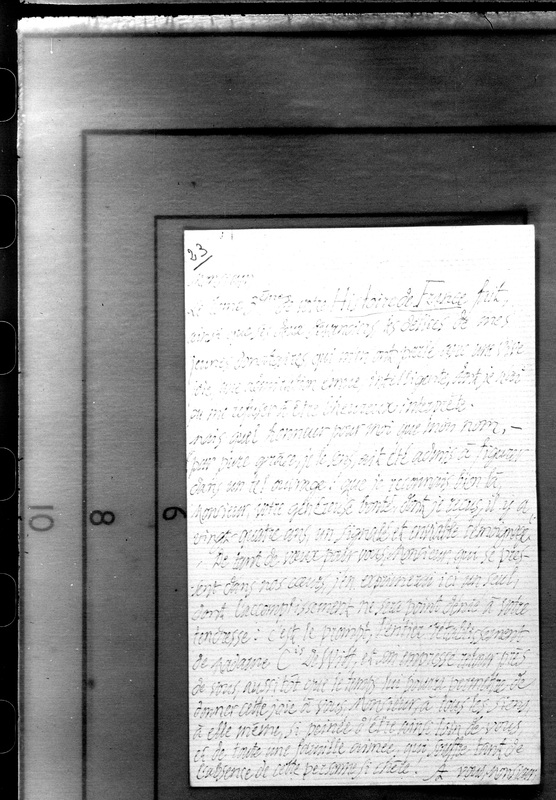 23/
Monsieur
Le Tome 3ème de votre Histoire de France fait,
ainsi que les deux premiers les délices de mes
jeunes qui m'en ont parlé avec une
une admiration intelligente, dont je
me refuser à être l'heureux interprète.
mais quel honneur pour moi que mon nom, –
par pure grâce, je le sens, ait été admis à figurer
dans un tel ouvrage! que je reconnais bien là,
Monsieur, votre généreuse bonté, dont je reçus, il y a
vingt-quatre ans, un signalé et témoignage
De tant de vœux pour vous, Monsieur, qui se pres-
sent dans nos cœurs, j'en exprimerai ici un seul,
dont l'accomplissement ne sera point à votre
tendresse: c'est le prompt, l'entier rétablissement
de Madame Cis De Witt, et son retour près
de vous aussitôt que le temps lui pourra permettre de
donner cette joie à vous, Monsieur, à tous les siens,
à elle même, si peinée d'être ainsi loin de vous
et de toute une famille aimée, qui souffre tant de
l'absence de cette personne si chère. A vous, Monsieur
10
8
6